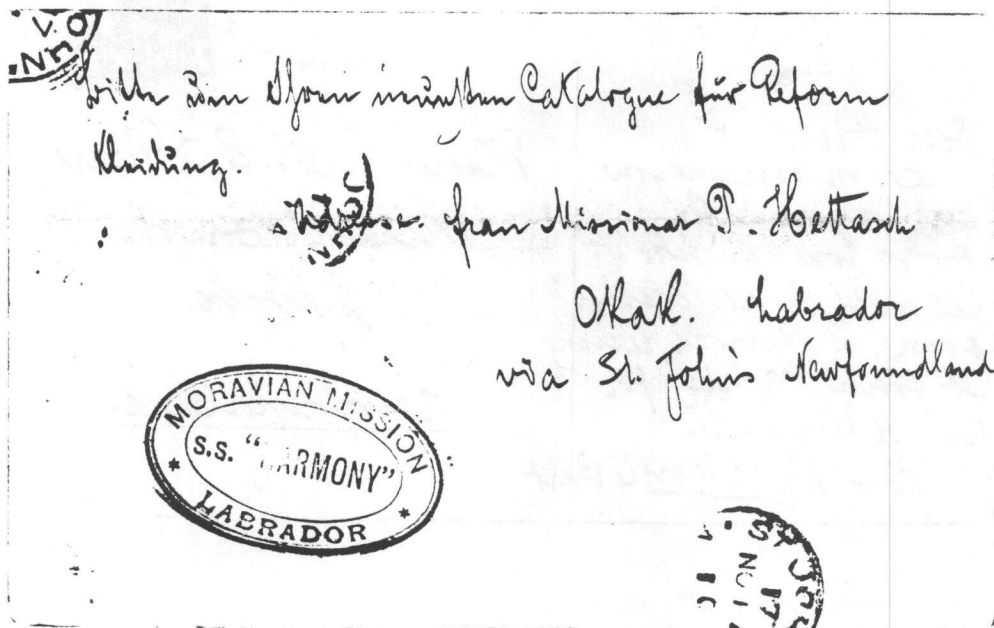 bitte um Ihren neuesten Catalogue für Reform
Kleidung.
Adresse frau Missionar P. Hettasch
Okak. Labrador
via St. John's Newfoundland
MORAVIAN MISSION
S.S. "HARMONY"
LABRADOR